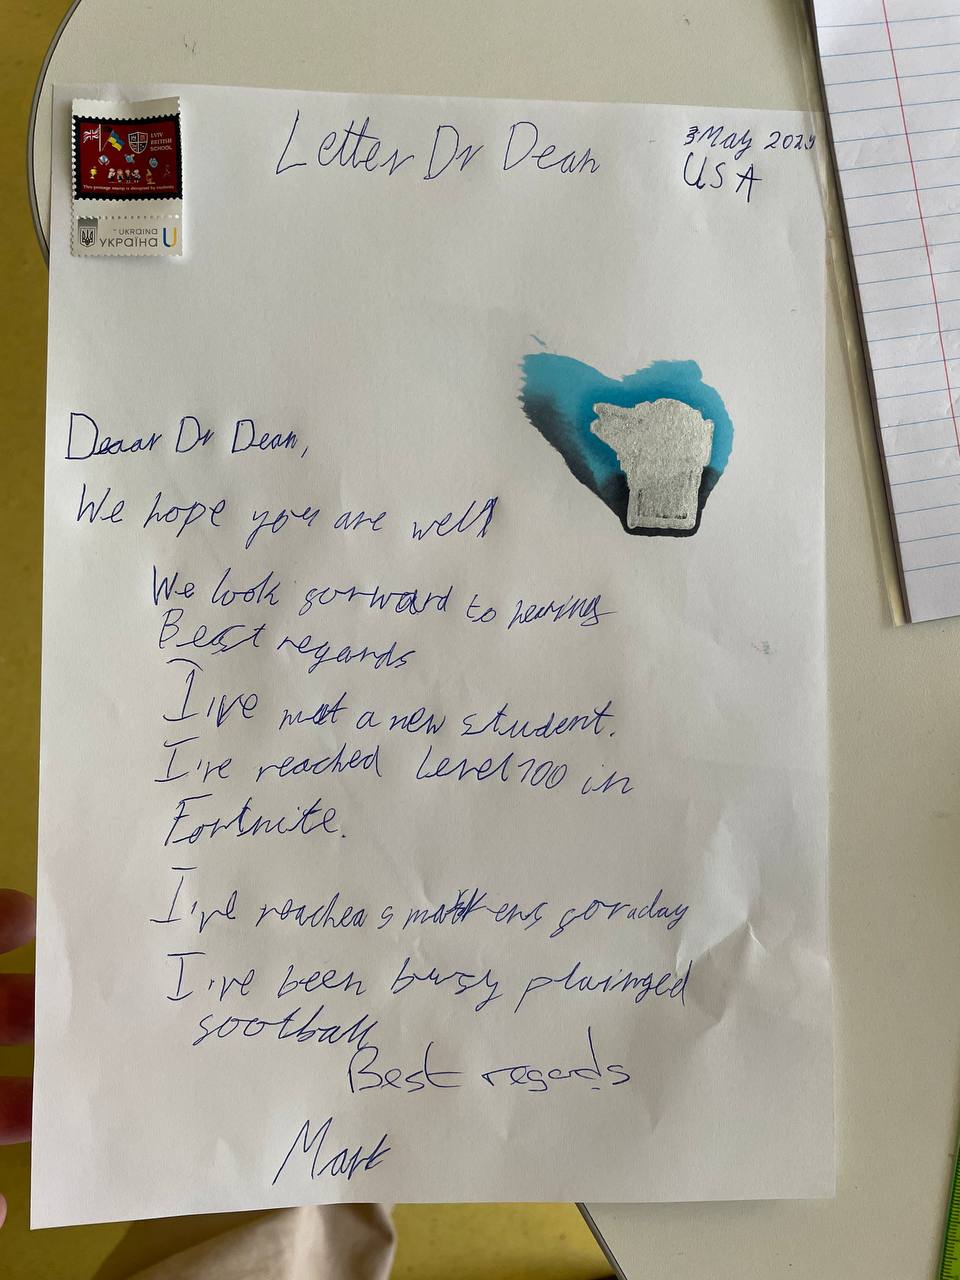 LVIV
BRITISH
SCHOOL
This postage stamp is designed by students
UKRAINA
УКРАЇНА U
Letter Dr Dean
3 May 2025
USA
Deaar Dr Dean,
We hope you are well
We look forward to hearing
Best regards
I've met a new student.
I've reached Level 100 in
Fortnite.
I've
I've been busy
football
Best regards
Mark